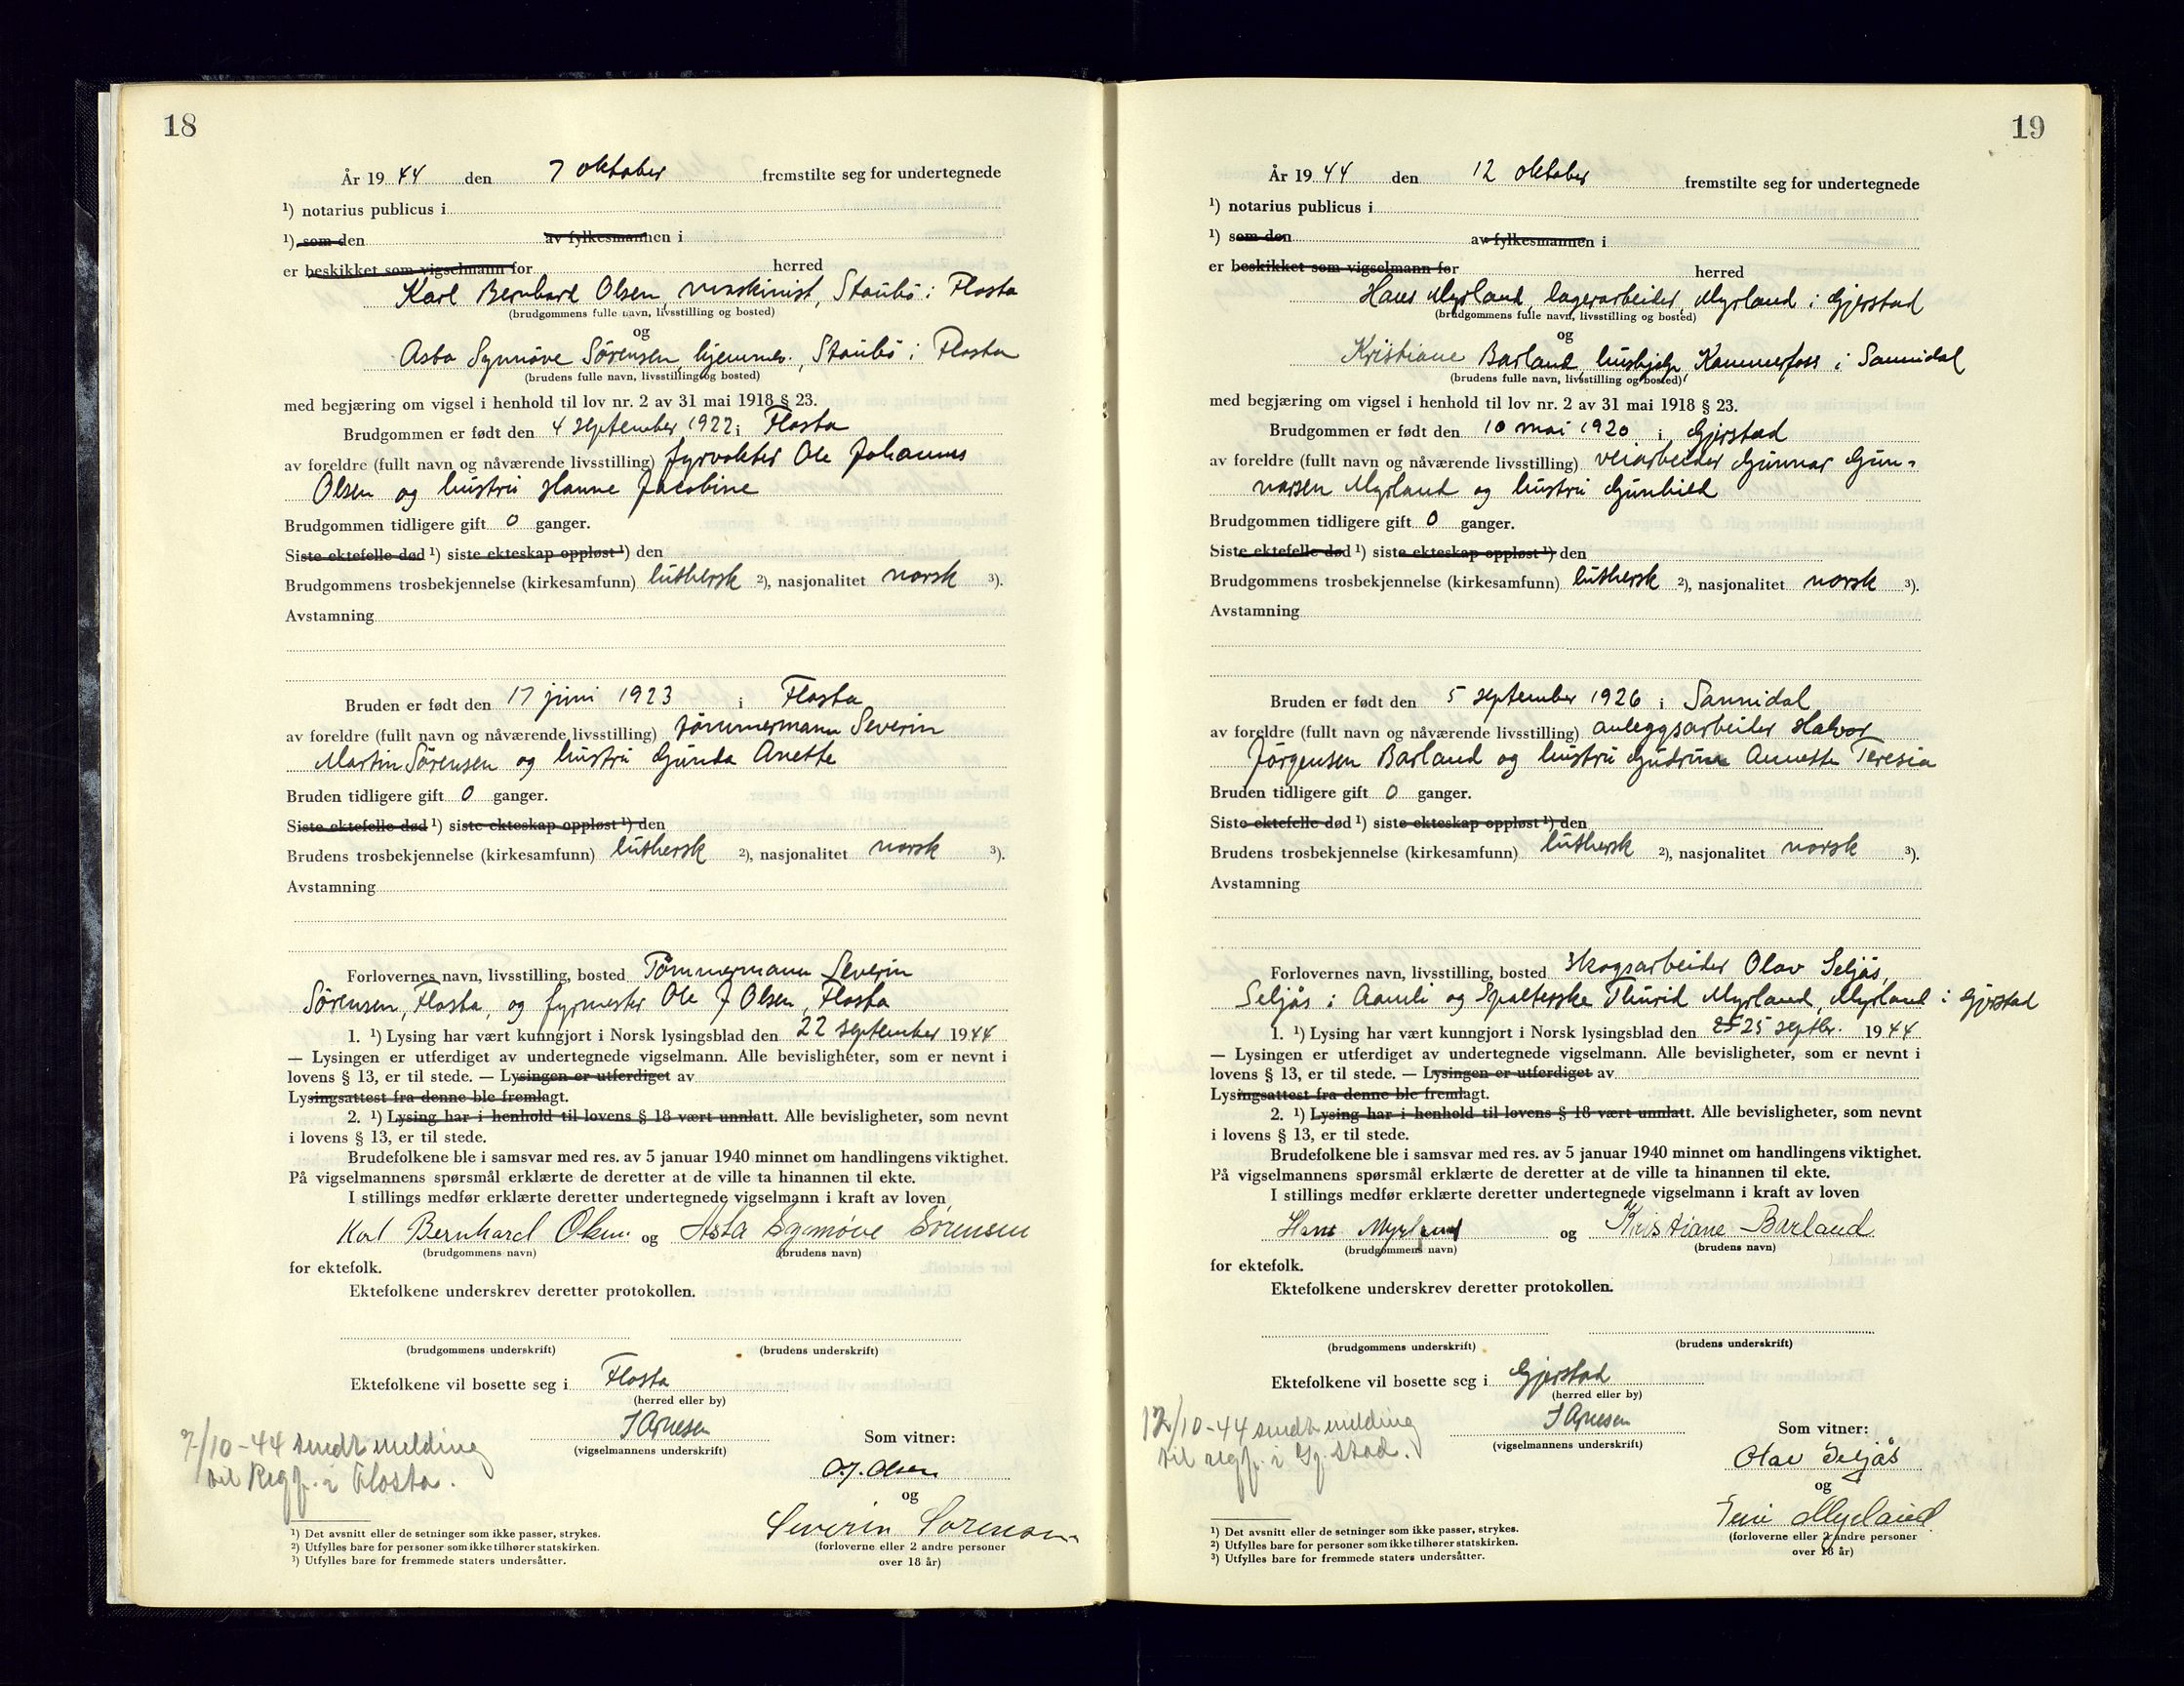 18
År 1944 den 7 oktober fremstilte seg for undertegnede
¹) notarius publicus i
¹) som den av fylkesmannen i
er beskikket som vigselmann for herred
Karl Bernhard Olsen, maskinist, Staubø i Flosta
(brudgommens fulle navn, livsstilling og bosted)
og
Asta Synnøve Sørensen, hjemmev., Staubø i Flosta
(brudens fulle navn, livsstilling og bosted)
med begjæring om vigsel i henhold til lov nr. 2 av 31 mai 1918 § 23.
Brudgommen er født den 4 september 1922 i Flosta
av foreldre (fullt navn og nåværende livsstilling) fyrvokter Ole Johannes
Olsen og hustru Hanne Jacobine
Brudgommen tidligere gift 0 ganger.
Siste ektefelle død ¹) siste ekteskap oppløst ¹) den
Brudgommens trosbekjennelse (kirkesamfunn) luthersk ²), nasjonalitet norsk ³).
Avstamning
Bruden er født den 17 juni 1923 i Flosta
av foreldre (fullt navn og nåværende livsstilling) tømmermann Severin
Martin Sørensen og hustru Gunda Anette
Bruden tidligere gift 0 ganger.
Siste ektefelle død ¹) siste ekteskap oppløst ¹) den
Brudens trosbekjennelse (kirkesamfunn) luthersk ²), nasjonalitet norsk ³).
Avstamning
Forlovernes navn, livsstilling, bosted Tømmermann Severin
Sørensen, Flosta, og fyrmester Ole J Olsen, Flosta
1. ¹) Lysing har vært kunngjort i Norsk lysingsblad den 22 september 1944
— Lysingen er utferdiget av undertegnede vigselmann. Alle bevisligheter, som er nevnt i
lovens § 13, er til stede. — Lysingen er utferdiget av
Lysingsattest fra denne ble fremlagt.
2. ¹) Lysing har i henhold til lovens § 18 vært unnlatt. Alle bevisligheter, som nevnt
i lovens § 13, er til stede.
Brudefolkene ble i samsvar med res. av 5 januar 1940 minnet om handlingens viktighet.
På vigselmannens spørsmål erklærte de deretter at de ville ta hinannen til ekte.
I stillings medfør erklærte deretter undertegnede vigselmann i kraft av loven
Karl Bernhard Olsen og Asta Synnøve Sørensen
(brudgommens navn) (brudens navn)
for ektefolk.
Ektefolkene underskrev deretter protokollen.
(brudgommens underskrift) (brudens underskrift)
Ektefolkene vil bosette seg i Flosta
(herred eller by)
J Arnesen
(vigselmannens underskrift)
7/10-44 sendt melding
til Regf. i Flosta.
Som vitner:
O.J. Olsen
og
Severin Sørensen
(forloverne eller 2 andre personer
over 18 år)
¹) Det avsnitt eller de setninger som ikke passer, strykes.
²) Utfylles bare for personer som ikke tilhører statskirken.
³) Utfylles bare for fremmede staters undersåtter.
19
År 1944 den 12 oktober fremstilte seg for undertegnede
¹) notarius publicus i
¹) som den av fylkesmannen i
er beskikket som vigselmann for herred
Hans Myrland, lagerarbeider, Myrland i Gjerstad
(brudgommens fulle navn, livsstilling og bosted)
og
Kristiane Barland, hushjelp, Kammerfoss i Sannidal
(brudens fulle navn, livsstilling og bosted)
med begjæring om vigsel i henhold til lov nr. 2 av 31 mai 1918 § 23.
Brudgommen er født den 10 mai 1920 i Gjerstad
av foreldre (fullt navn og nåværende livsstilling) veiarbeider Gunnar Gun-
narsen Myrland og hustru Gunhild
Brudgommen tidligere gift 0 ganger.
Siste ektefelle død ¹) siste ekteskap oppløst ¹) den
Brudgommens trosbekjennelse (kirkesamfunn) luthersk ²), nasjonalitet norsk ³).
Avstamning
Bruden er født den 5 september 1926 i Sannidal
av foreldre (fullt navn og nåværende livsstilling) anleggsarbeider Halvor
Jørgensen Barland og hustru Gudrun Annette Teresia
Bruden tidligere gift 0 ganger.
Siste ektefelle død ¹) siste ekteskap oppløst ¹) den
Brudens trosbekjennelse (kirkesamfunn) luthersk ²), nasjonalitet norsk ³).
Avstamning
Forlovernes navn, livsstilling, bosted Skogsarbeider Olav Seljås,
Seljås i Aamli og Thurid Myrland, Myrland i Gjerstad
1. ¹) Lysing har vært kunngjort i Norsk lysingsblad den 25 25 septbr. 1944
— Lysingen er utferdiget av undertegnede vigselmann. Alle bevisligheter, som er nevnt i
lovens § 13, er til stede. — Lysingen er utferdiget av
Lysingsattest fra denne ble fremlagt.
2. ¹) Lysing har i henhold til lovens § 18 vært unnlatt. Alle bevisligheter, som nevnt
i lovens § 13, er til stede.
Brudefolkene ble i samsvar med res. av 5 januar 1940 minnet om handlingens viktighet.
På vigselmannens spørsmål erklærte de deretter at de ville ta hinannen til ekte.
I stillings medfør erklærte deretter undertegnede vigselmann i kraft av loven
Hans Myrland og Kristiane Barland
(brudgommens navn) (brudens navn)
for ektefolk.
Ektefolkene underskrev deretter protokollen.
(brudgommens underskrift) (brudens underskrift)
Ektefolkene vil bosette seg i Gjerstad
(herred eller by)
J Arnesen
(vigselmannens underskrift)
12/10-44 sendt melding
til regf. i Gj.stad.
Som vitner:
Olav Seljås
og
Myrland
(forloverne eller 2 andre personer
over 18 år)
¹) Det avsnitt eller de setninger som ikke passer, strykes.
²) Utfylles bare for personer som ikke tilhører statskirken.
³) Utfylles bare for fremmede staters undersåtter.